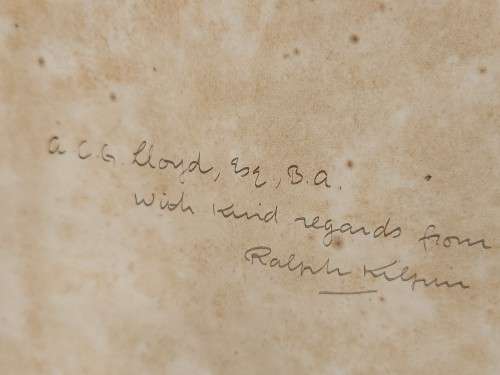 A C. G. Lloyd, Esq, B.A.
With kind regards from
Ralph Kilpin